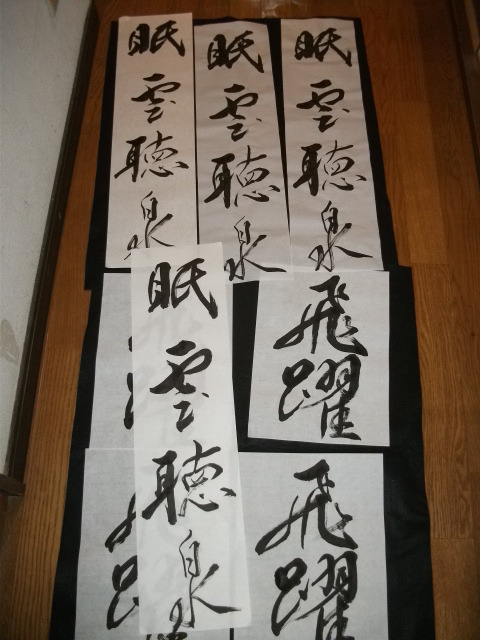 眠雲聴泉
眠雲聴泉
眠雲聴泉
眠雲聴泉
飛躍
飛躍